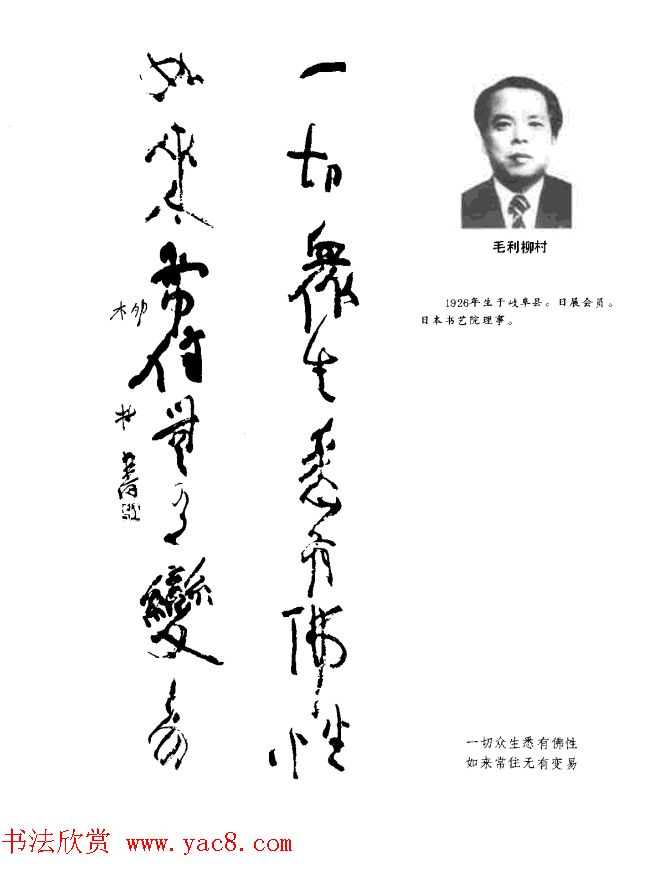 一切衆生悉有佛性
如來常住無有變易
柳村書
毛利柳村
1926年生于岐阜县。日展会员。
日本书艺院理事。
一切众生悉有佛性
如来常住无有变易
书法欣赏 www.yac8.com